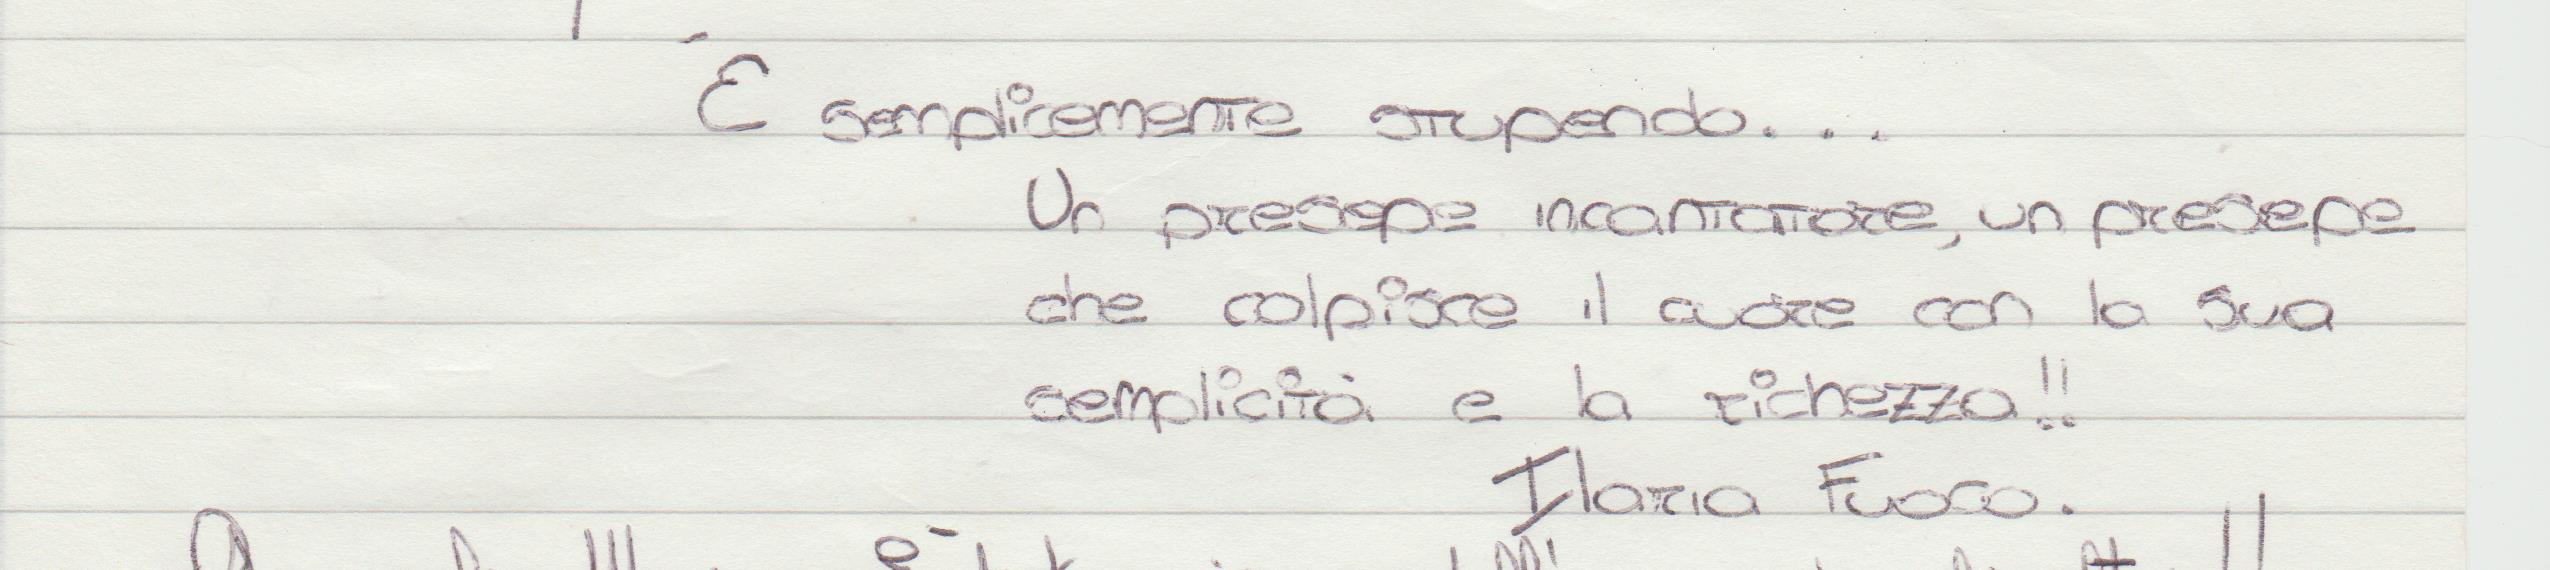 É semplicemente stupendo...
Un presepe incantatore, un presepe
che colpisce il cuore con la sua
semplicità e la richezza!!
Ilaria Fuoco.